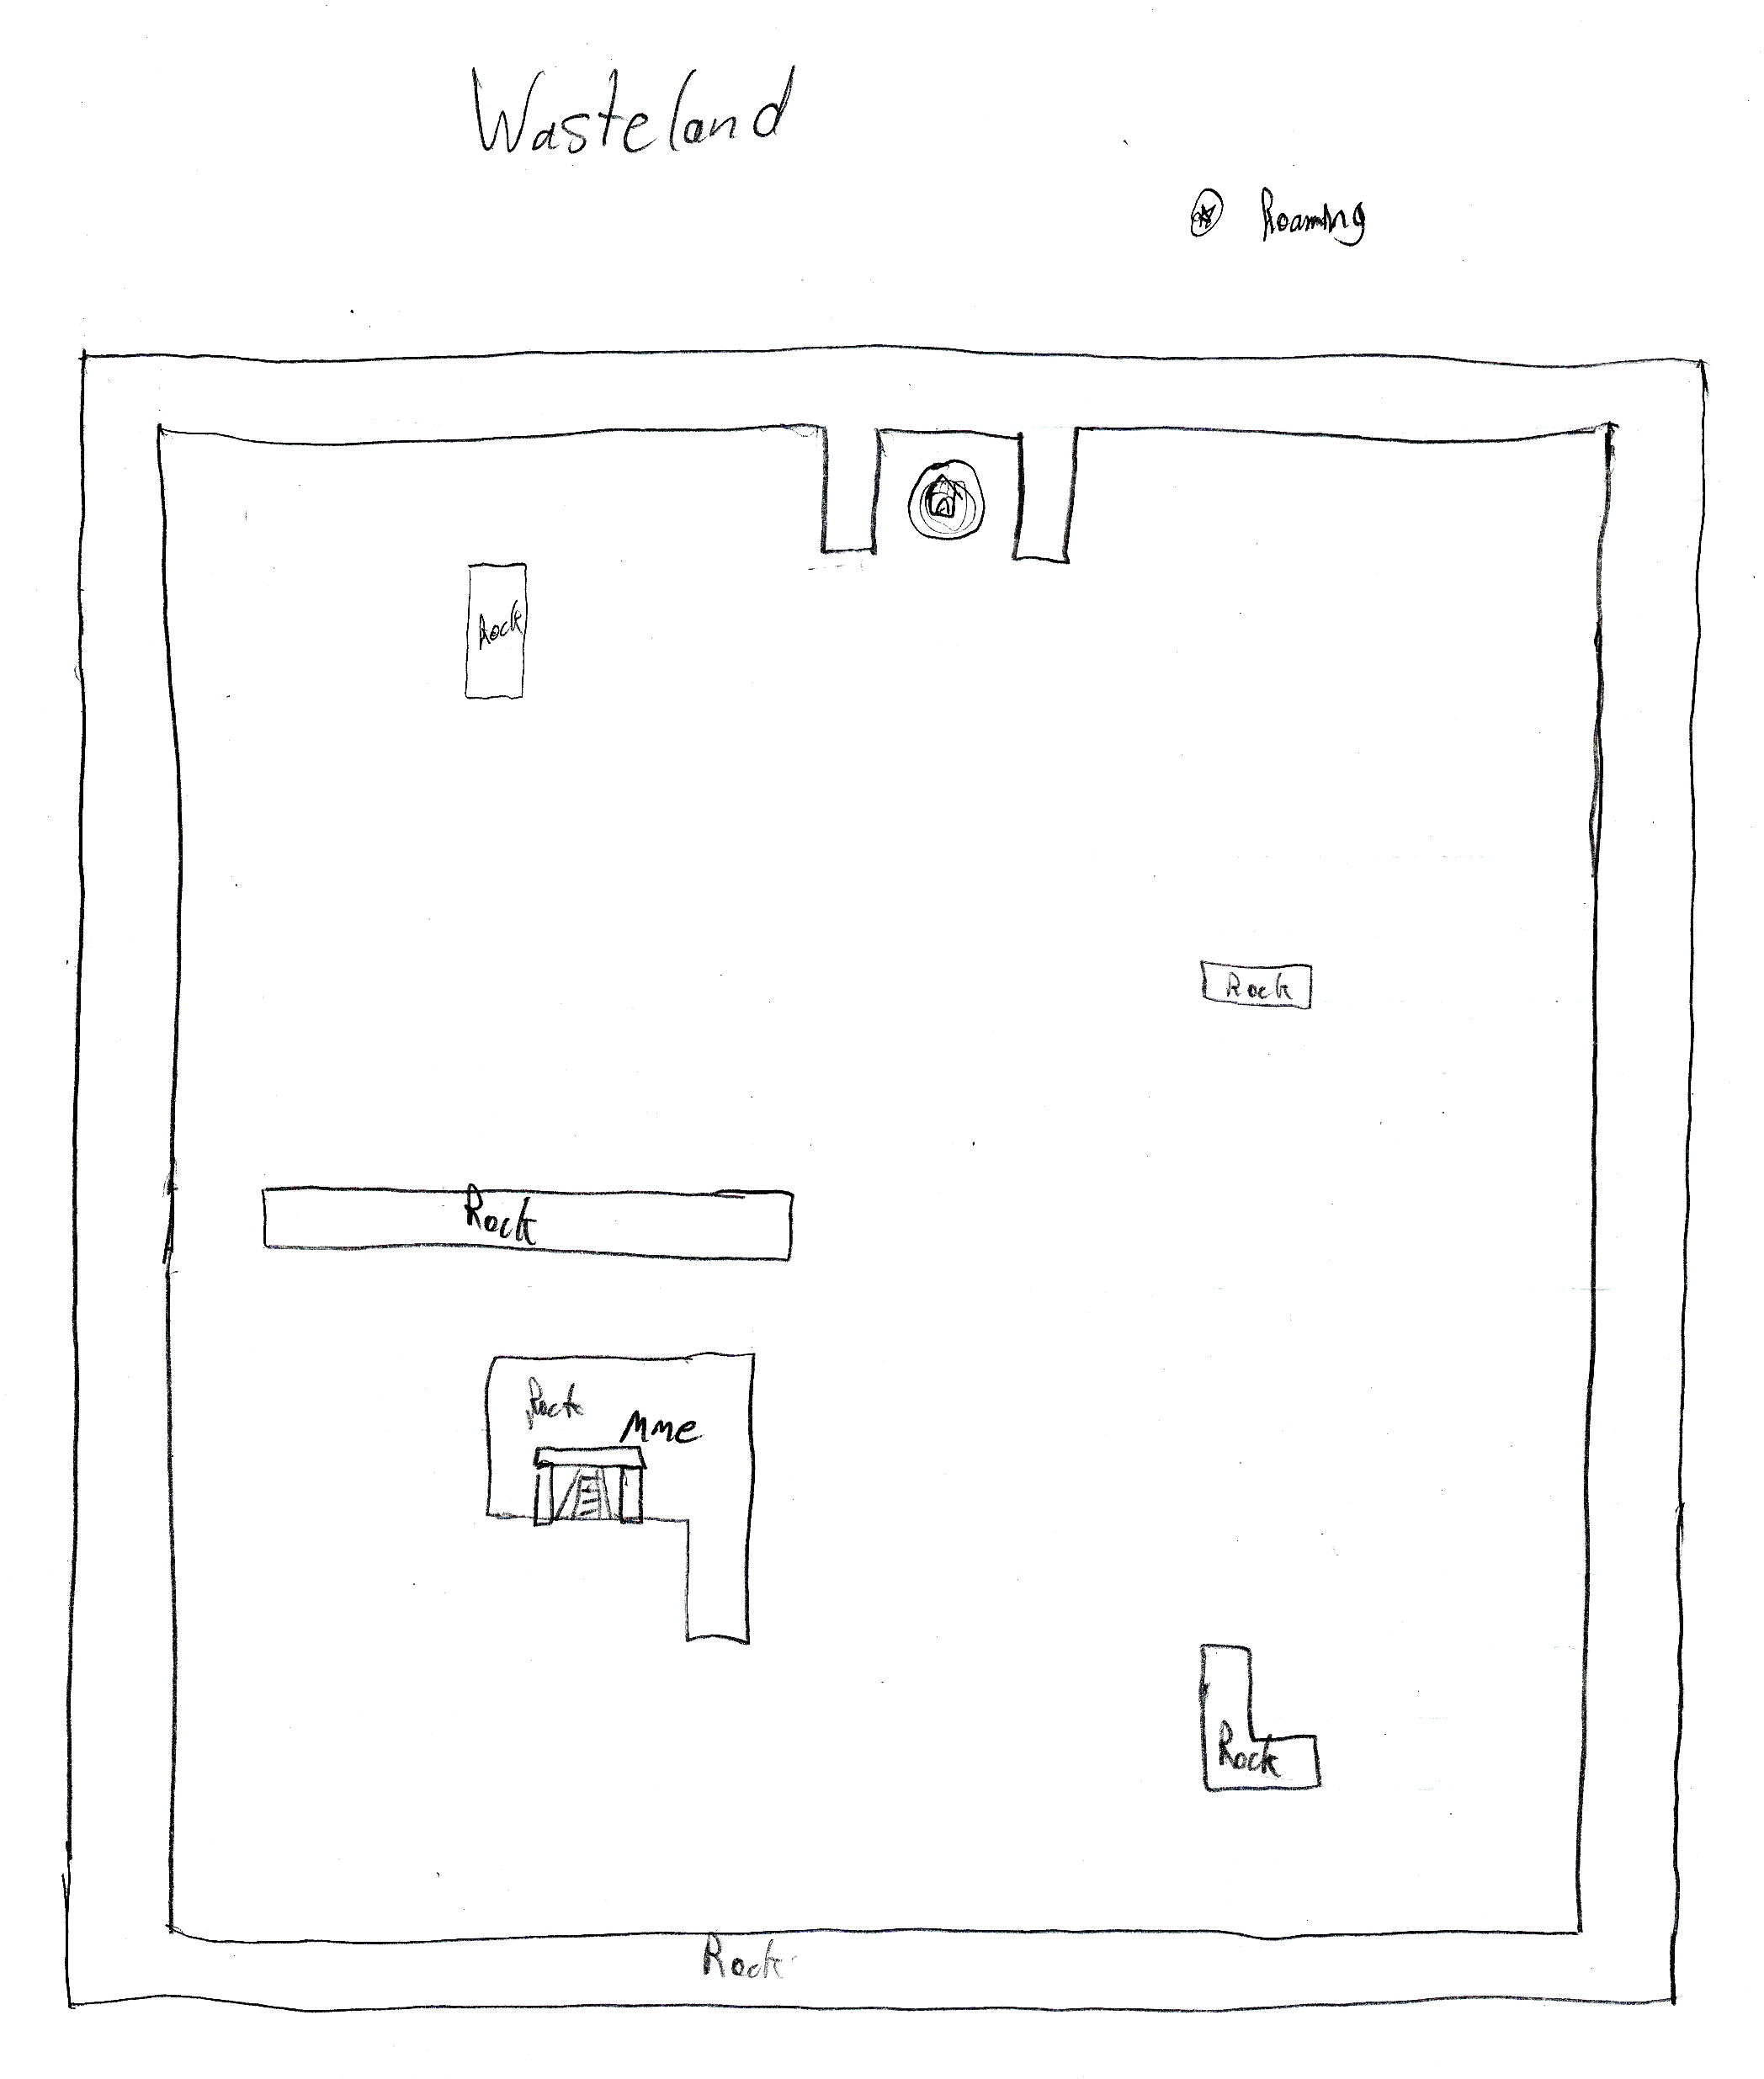 Wasteland
Roaming
Rock
Rock
Rock
Rock
Mine
Rock
Rock